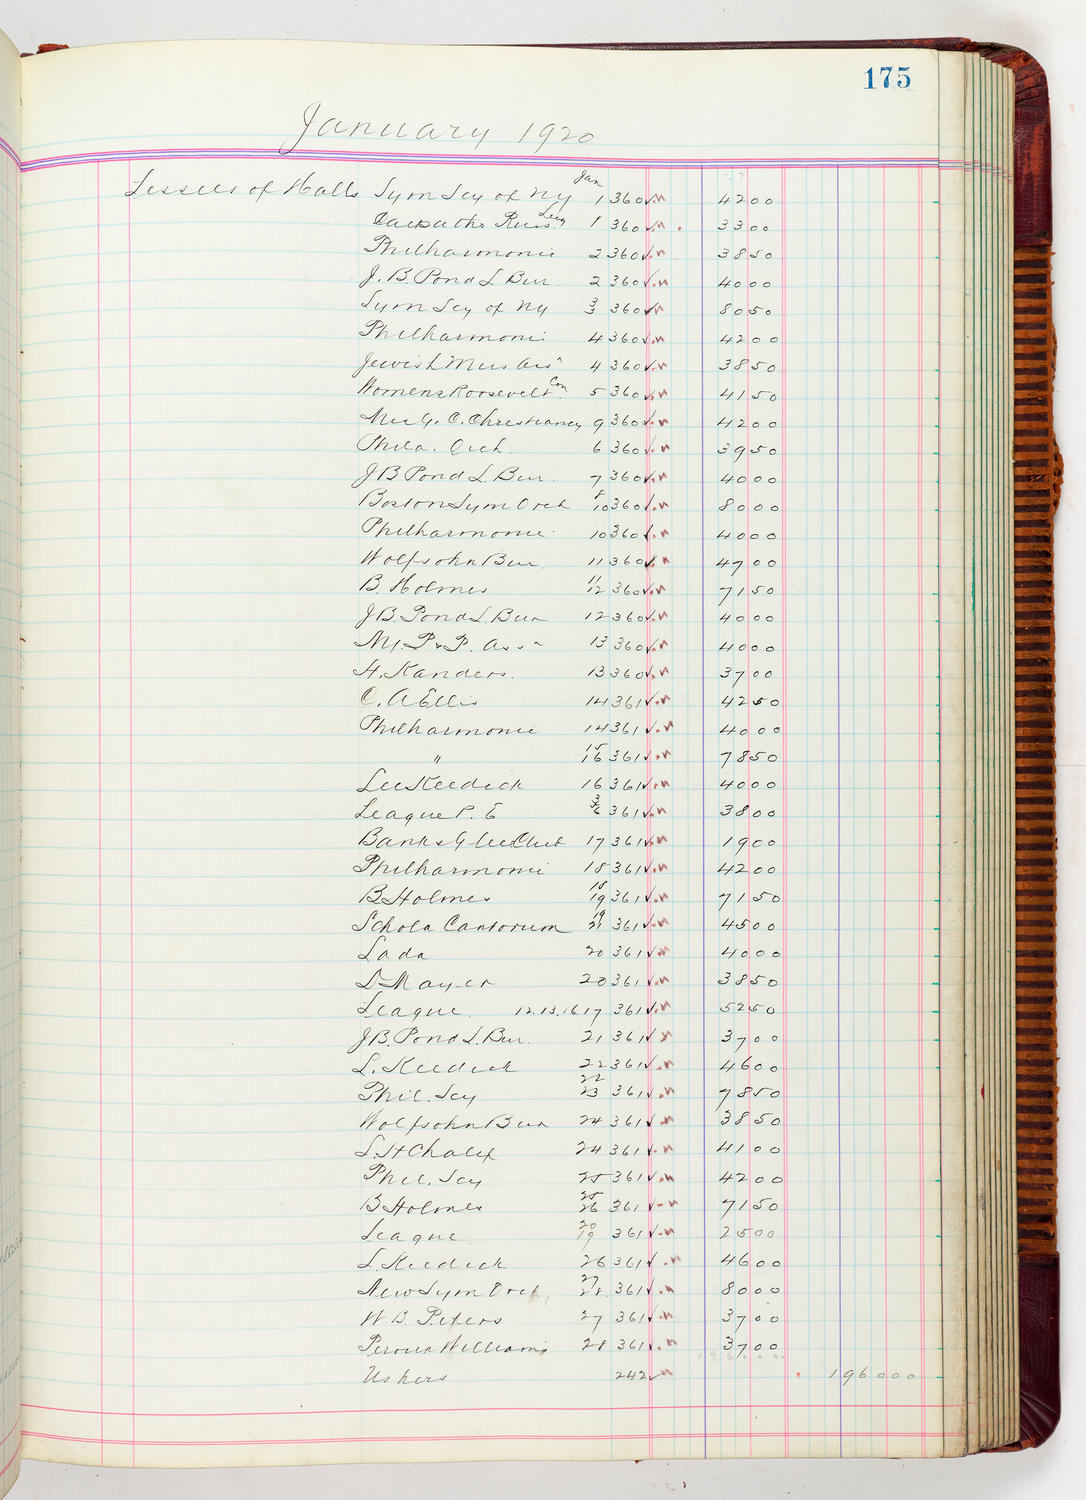 175
January 1920
Lessees of Halls Sym Scy of Ny Jan 1 360 4200
Russ. 1 360 3300
Philharmonic 2 360 3850
J. B. Pond L Bur. 2 360 4000
Sym Scy of Ny 3 3 360 8050
Philharmonic 4 360 4200
Jewish Mus Ass'n 4 360 3850
Womens Roosevelt Com. 5 360 4150
Mrs G. C. Christiancy 9 360 4200
Phila. Orch. 6 360 3950
J B Pond L. Bur. 7 360 4000
Boston Sym Orch 8 10 360 8000
Philharmonic 10 360 4000
Wolfsohn Bur. 11 360 4700
B. Holmes 11 12 360 7150
J B. Pond L Bur 12 360 4000
M. P. & P. Ass'n 13 360 4000
H. Kanders. 13 360 3700
C. A Ellis 14 361 4250
Philharmonic 14 361 4000
" 15 16 361 7850
Lee Keedick 16 361 4000
League P. E 361 3800
Banks Glee Club 17 361 1900
Philharmonic 18 361 4200
B Holmes 18 19 361 7150
Schola Cantorum 19 21 361 4500
Lada 20 361 4000
D Mayer 20 361 3850
League. 12.13.16.17 361 5250
J B. Pond L. Bur. 21 361 3700
L. Keedick 22 361 4600
Phil. Scy 22 23 361 7850
Wolfsohn Bur 24 361 3850
L. H Chalif 24 361 4100
Phil. Scy 25 361 4200
B Holmes 25 26 361 7150
League 20 19 361 2500
L. Keedick 26 361 4600
New Sym Orch, 27 28 361 8000
W. B. Peters 27 361 3700
Williams 28 361 3700
Ushers 242 196000